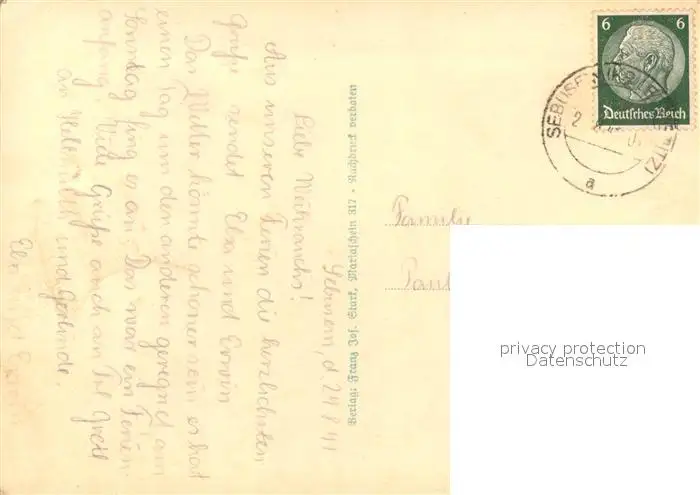 Sebusein, d. 24.8.41
Liebe Weihrauchs!
Aus unseren Ferien die herzlichsten
Grüße sendet Elsa und Erwin
Das Wetter könnte schöner sein es hat
einen Tag um den anderen geregnet am
Sonntag fing es an. Das war ein Ferien-
anfang. Viele Grüße auch an Frl. Gretl
an und Gerlinde.
Verlag: Franz Jos. Stark, Mariaschein 317 · Nachdruck verboten
Familie
6 6
Deutsches Reich
SEBUSEIN
a
privacy protection
Datenschutz